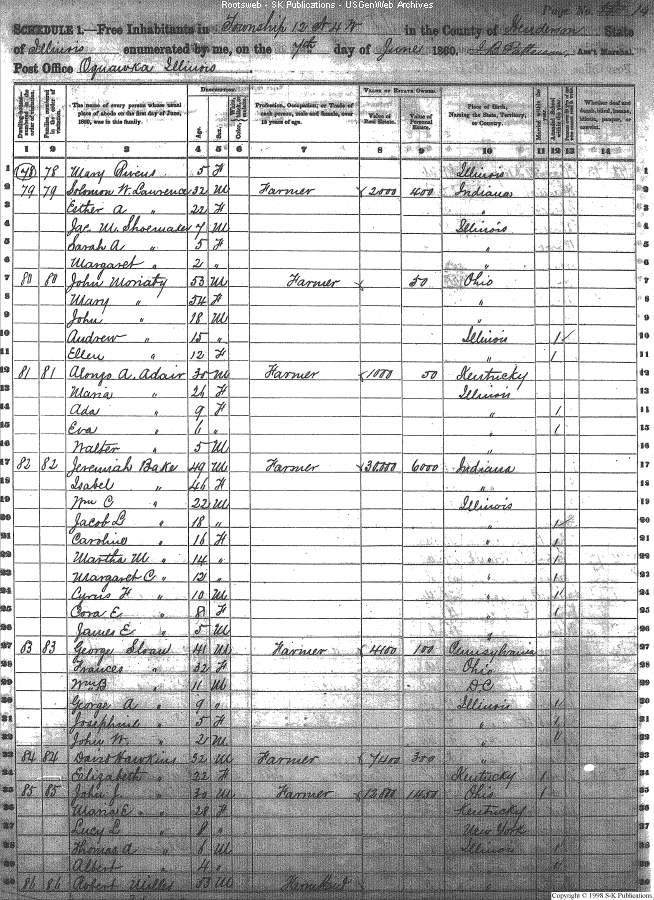 Rootsweb - SK Publications - USGenWeb Archives
Page No. 14
SCHEDULE 1.—Free Inhabitants in Township 12 N 4 W in the County of Henderson State
of Illinois enumerated by me, on the 7th day of June 1860. Ass't Marshal.
Post Office Oquawka Illinois
DESCRIPTION. VALUE OF ESTATE OWNED.
The name of every person whose usual place of abode on the first day of June, 1860, was in this family.
Age. Sex.
Profession, Occupation, or Trade of each person, male and female, over 15 years of age.
Value of Real Estate. Value of Personal Estate.
Place of Birth, Naming the State, Territory, or Country.
Whether deaf and dumb, blind, insane, idiotic, pauper, or convict.
1 2 3 4 5 6 7 8 9 10 11 12 13 14
1 78 78 Mary 5 F Illinois 1
2 79 79 Solomon W. Lawrence 32 M Farmer 2000 400 Indiana 2
3 Esther A " 22 F " 3
4 Jac. M. Shoemaker 7 M Illinois 4
5 Sarah A " 5 F " 5
6 Margaret " 2 " " 6
7 80 80 John Moriaty 53 M Farmer 50 Ohio 7
8 Mary " 54 F " 8
9 John " 18 M " 9
10 Andrew " 15 " Illinois 1 10
11 Ellen " 12 F " 1 11
12 81 81 Alonzo A. Adair 30 M Farmer 1000 50 Kentucky
13 Maria " 26 F Illinois
14 Ada " 9 F " 1
15 Eva " 6 " " 1
16 Walter " 5 M "
17 82 82 Jeremiah Bake 49 M Farmer 30,000 6000 Indiana 17
18 Isabel " 46 F " 18
19 Wm C " 22 M Illinois 19
20 Jacob L " 18 " " 1 20
21 Caroline " 16 F " 1 21
22 Martha M " 14 " " 1
23 Margaret C " 12 " " 1
24 Cyrus F " 10 M " 1
25 Cora E " 8 F " 1
26 James E " 5 M "
27 83 83 George Sloan 41 M Farmer 4100 100 Pennsylvania
28 Frances " 32 F Ohio
29 Wm B " 11 M DC
30 George A " 9 " Illinois 1
31 Josephine " 5 F " 1
32 John W. " 2 M "
33 84 84 David Hawkins 52 M Farmer 7400 300 "
34 Elizabeth " 22 F Kentucky 1
35 85 85 John J. " 30 M Farmer 12,000 1450 Ohio 1
36 Maria E " 28 F Kentucky
37 Lucy L " 8 " New York
38 Thomas A " 6 M Illinois
39 Albert " 4 " "
40 86 86 Robert 53 M
Copyright © 1998 S-K Publications